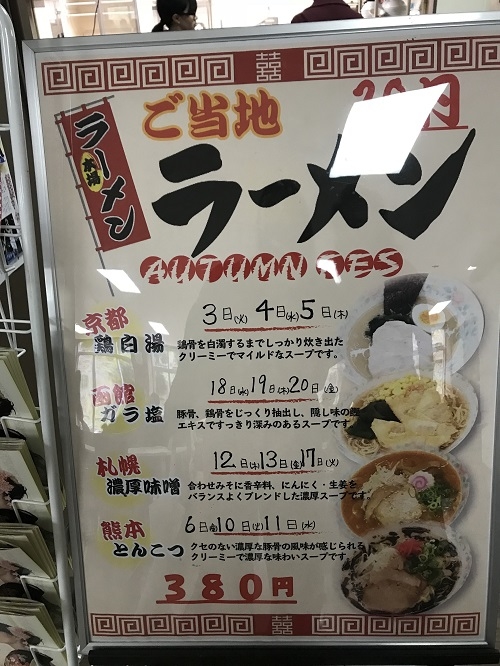 10月
本場
ラーメン
ご当地
ラーメン
AUTUMN FES
京都
鶏白湯
3日(火) 4日(水) 5日(木)
鶏骨を白濁するまでしっかり炊き出た
クリーミーでマイルドなスープです。
函館
ガラ塩
18日(水) 19日(木) 20日(金)
豚骨、鶏骨をじっくり抽出し、隠し味の
エキスですっきり深みのあるスープです。
札幌
濃厚味噌
12日(木) 13日(金) 17日(火)
合わせみそに香辛料、にんにく・生姜を
バランスよくブレンドした濃厚スープです。
熊本
とんこつ
6日(金) 10日(火) 11日(水)
クセのない濃厚な豚骨の風味が感じられる
クリーミーで濃厚な味わいスープです。
380円